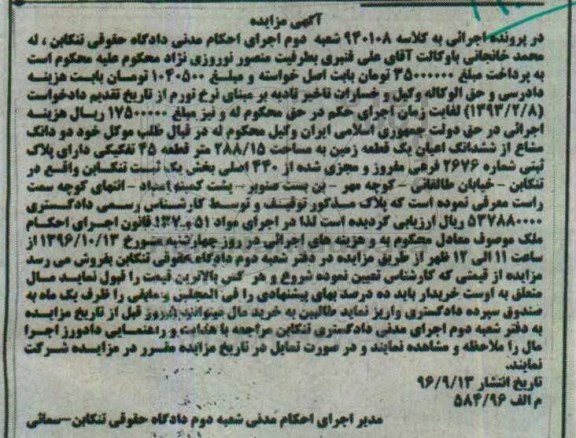 آگهی مزایده
در پرونده اجرائی به کلاسه ۹۴۰۱۰۸ شعبه دوم اجرای احکام مدنی دادگاه حقوقی تنکابن ، له
محمد خانجانی باوکالت آقای علی قنبری بطرفیت منصور نوروزی نژاد محکوم علیه محکوم است
به پرداخت مبلغ ۳۵۰۰۰۰۰۰ تومان بابت اصل خواسته و مبلغ ۱۰۴۰۵۰۰ تومان بابت هزینه
دادرسی و حق الوکاله وکیل و خسارات تاخیر تادیه بر مبنای نرخ تورم از تاریخ تقدیم دادخواست
(۱۳۹۳/۲/۸) لغایت زمان اجرای حکم در حق محکوم له و نیز مبلغ ۱۷۵۰۰۰۰۰ ریال هزینه
اجرائی در حق دولت جمهوری اسلامی ایران وکیل محکوم له در قبال طلب موکل خود دو دانگ
مشاع از ششدانگ اعیان یک قطعه زمین به مساحت ۲۸۸/۱۵ متر قطعه ۴۵ تفکیکی دارای پلاک
ثبتی شماره ۲۶۷۶ فرعی مفروز و مجزی شده از ۴۴۰ اصلی بخش یک ثبت تنکابن واقع در
تنکابن - خیابان طالقانی - کوچه مهر - بن بست صنوبر - پشت کمیته امداد - انتهای کوچه سمت
راست معرفی نموده است که پلاک مذکور توقیف و توسط کارشناس رسمی دادگستری
۵۳۷۸۸۰۰۰۰ ریال ارزیابی گردیده است لذا در اجرای مواد ۵۱ و ۱۳۷ قانون اجرای احکام
ملک موصوف معادل محکوم به و هزینه های اجرائی در روز چهارشنبه مورخ ۱۳۹۶/۱۰/۱۳ از
ساعت ۱۱ الی ۱۲ ظهر از طریق مزایده در دفتر شعبه دوم دادگاه حقوقی تنکابن بفروش می رسد
مزایده از قیمتی که کارشناس تعیین نموده شروع و هر کس بالاترین قیمت را قبول نماید مال
متعلق به اوست خریدار باید ده درصد بهای پیشنهادی را فی المجلس و مابقی را ظرف یک ماه به
صندوق سپرده دادگستری واریز نماید طالبین به خرید مال میتوانند روز قبل از تاریخ مزایده
به دفتر شعبه دوم اجرای مدنی دادگستری تنکابن مراجعه با هدایت و راهنمایی دادورز اجرا
مال را ملاحظه و مشاهده نمایند و در صورت تمایل در تاریخ مزایده مقرر در مزایده شرکت
نمایند.
تاریخ انتشار ۹۶/۹/۱۳
م الف ۵۸۴/۹۶
مدیر اجرای احکام مدنی شعبه دوم دادگاه حقوقی تنکابن-سمائی